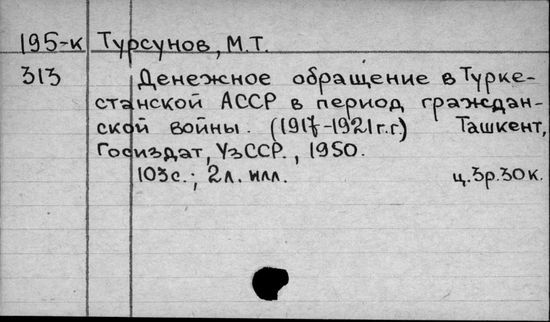 195-к Турсунов, М.Т.
313 Денежное обращение в Турке-
станской АССР в период граждан-
ской войны. (1917-1921г.г) Ташкент,
Госиздат, УзССР., 1950.
103с.; 2л. илл. ц.3р.30к.